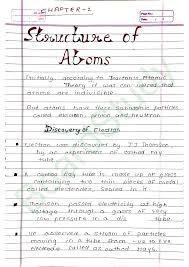 CHAPTER-2
Structure of
Atoms
Initially, according to Dalton's Atomic
Theory it was considered that
atoms are indivisible.
But atoms have three subatomic particles
called electron, proton and neutron
Discovery of Electron
Electron was discovered by J.J Thomson
by an experiment of cathod ray
tube.
A cathod ray tube is made up of glass
containing two thin pieces of metal
called electrodes, sealed in it.
Thomson passed electricity at high
voltage through a gases of very
low pressure in a tube.
He observed a stream of particles
moving in a tube from -ve to +ve
electrode called as cathod rays.